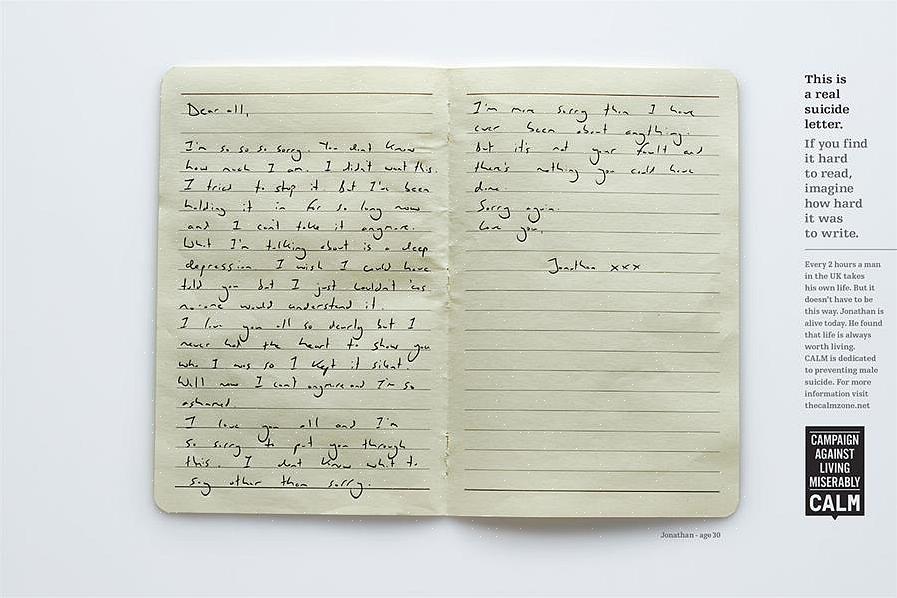 Dear all,
I'm so so so sorry. You dont know
how much I am. I didn't want this.
I tried to stop it. But I've been
holding it in for so long now
and I can't take it anymore.
What I'm talking about is a deep
depression I wish I could have
told you but I just couldn't 'cos
no-one would understand it.
I love you all so dearly but I
never had the heart to show you
who I was so I kept it silent.
Well now I can't anymore and I'm so
ashamed.
I love you all and I'm
so sorry to put you through
this. I dont know what to
say other than sorry.
I'm more sorry than I have
ever been about anything.
But it's not your fault and
there's nothing you could have
done.
Sorry again.
Love you,
Jonathan xxx
Jonathan - age 30
This is
a real
suicide
letter.
If you find
it hard
to read,
imagine
how hard
it was
to write.
Every 2 hours a man
in the UK takes
his own life. But it
doesn't have to be
this way. Jonathan is
alive today. He found
that life is always
worth living.
CALM is dedicated
to preventing male
suicide. For more
information visit
thecalmzone.net
CAMPAIGN
AGAINST
LIVING
MISERABLY
CALM